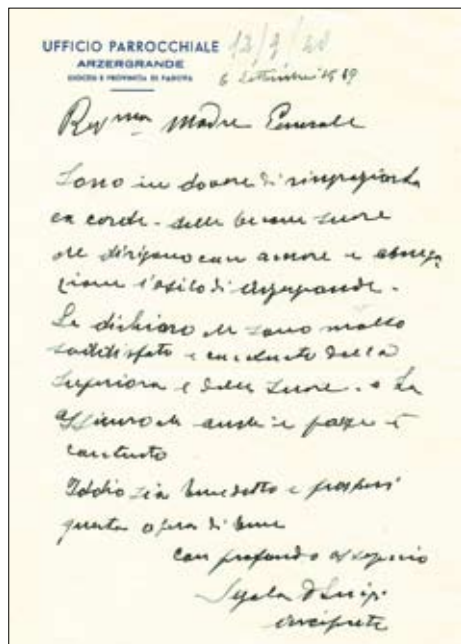 UFFICIO PARROCCHIALE
ARZERGRANDE
DIOCESI E PROVINCIA DI PADOVA
6 Settembre 1969
Rev ma Madre Generale
Sono in dovere di ringraziarla
ex corde delle buone suore
che dirigono con amore e abnega
zione l'asilo di Arzergrande.
Le dichiaro che sono molto
soddisfatto e contento della
Superiora e delle Suore. e La
assicuro che anche il paese è
contento
Iddio sia benedetto e prosperi
questa opera di bene
con profondo ossequio
D Luigi
Arciprete